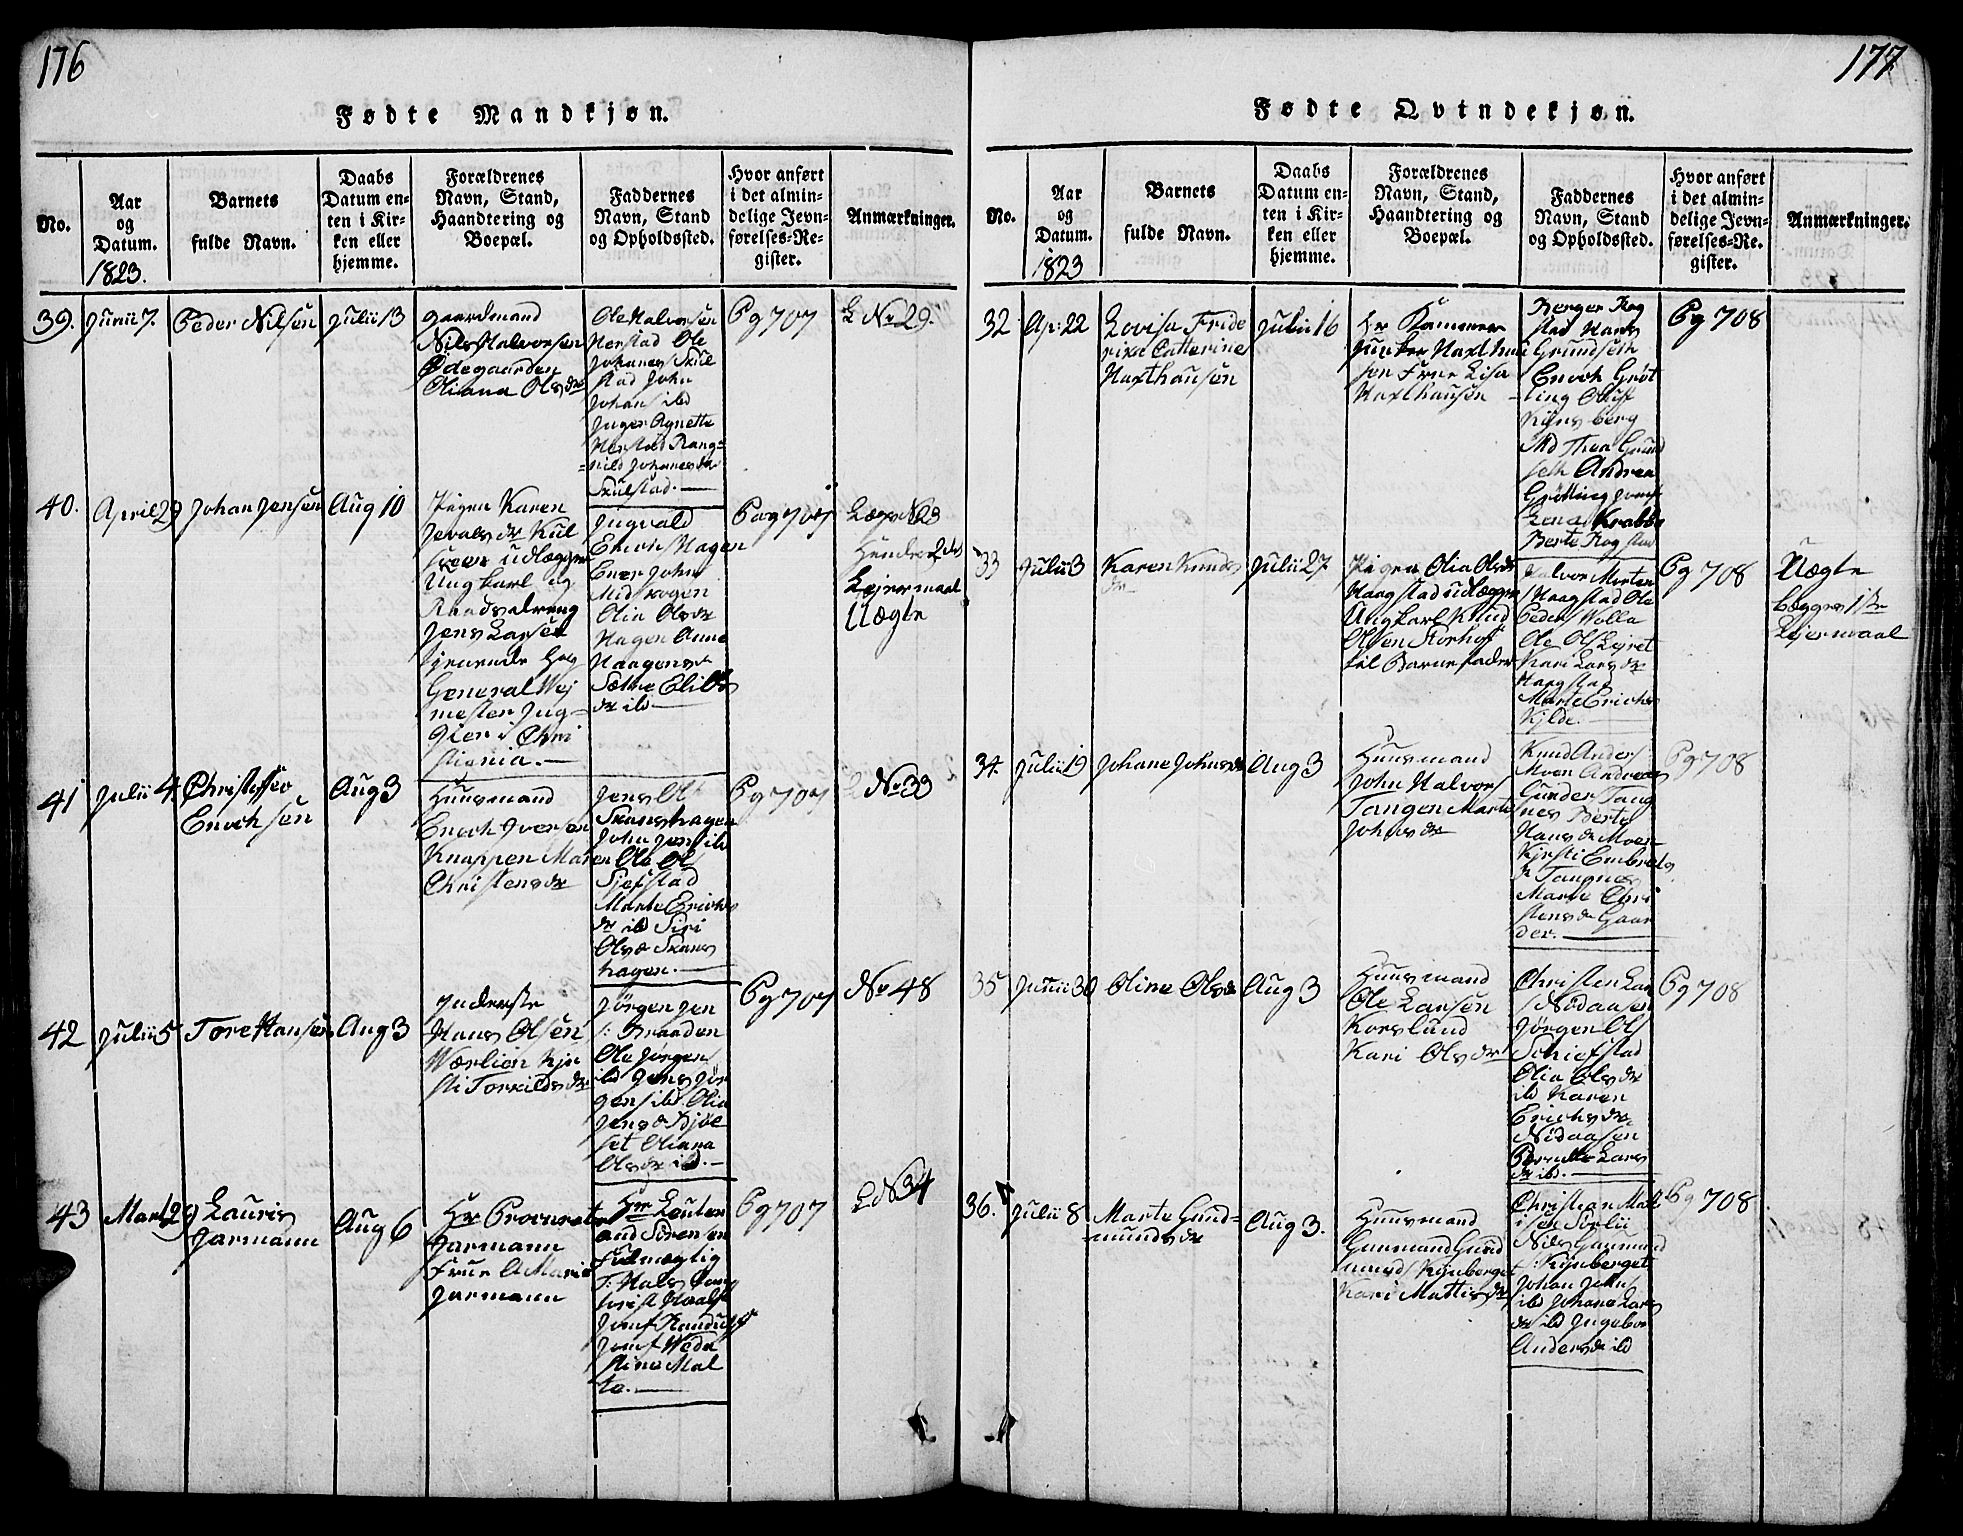 176
Fødte Mandkjøn.
No.
Aar
og
Datum.
1823.
Barnets
fulde Navn.
Daabs
Datum en-
ten i Kir-
ken eller
hjemme.
Forældrenes
Navn, Stand,
Haandtering og
Boepæl.
Faddernes
Navn, Stand
og Opholdssted.
Hvor anført
i det almin-
delige Jevn-
førelses-Re-
gister.
Anmærkninger.
39.
Junii 7.
Peder Nilsen
Julii 13
gaardmand
Nils Halvorsen
Ødegaarden
Oliana Olsdr
Ole Halvorsen
Herstad Ole
Johannes Skul
stad John
Johans ibd
Inger Agnette
Herstad Rang-
nild Johanesdr
Skulstad.
Pg 707
L No 29.
40.
April 29
Johan Jensen
Aug 10
Pigen Karen
udlægger
Ungkarl og
Jens Larsen
tjenende hos
General Vej
mester
i Chri
stiania.
Ingvald
Hagen
Ener John
Midskogen
Olia Olsdr
Hagen Anne
Haagensdr
Sætre
dr ibd
Pag 707
Læg No 23
2det
Lejermaal
Uægte
41
Julii 4.
Christopher
Enochsen
Aug 3
Huusmand
Enoch Iversen
Knappen Maren
Christensdr
Jens Ols
Skanshagen
John Jens ibd
Ole Ols
Sjefstad
Marte Erichs
dr ibd Siri
Olsdr Skans
hagen.
Pg 707
No 33
42
Julii 5
Tore Hansen
Aug 3
Inderste
Hans Olsen
Værlien Kje
sti Torkildsdr
Jørgen Jen
s: Braaden
Ole Jørgens
ibd Jens Jør
gens ibd Olia
Jensdr Kjøl
set Oliana
Olsdr ibd.
Pg 707
No 48
43
Marts 29
Lauris
Jarmann
Aug 6
Hr Procurat
Jarmann
Frue A Marie
Jarmann
Hr Leuten
and Sørensen
Fulmægtig
Jomf
Jomf Weda
Stine Mal
te.
Pg 707
L No 34
177
Fødte Qvindekjøn.
No.
Aar
og
Datum.
1823
Barnets
fulde Navn.
Daabs
Datum en-
ten i Kir-
ken eller
hjemme.
Forældrenes
Navn, Stand,
Haandtering og
Boepæl.
Faddernes
Navn, Stand
og Opholdssted.
Hvor anført
i det almin-
delige Jevn-
førelses-Re-
gister.
Anmærkninger.
32.
Apr: 22
Lovisa Fride
rixe Catterine
Haxthausen
Julii 16
Hr Kammer
junker Haxthau
sen Frue Lisa
Haxthausen
Berger Rog
stad Hans
Grundseth
Enoch Grøt
ting Oluf
Kjønsberg
Md Thea Grund
seth Andrea
Grøtting Jomf
Lena Krabbe
Berte Rogstad
Pg 708
33
Julii 3
Karen Knuds
dr
Julii 27
Pigen Olia Olsdr
Haagstad udlægger
Ungkarl Knud
Olsen Storhof
til Barnefader
Halvor Morten
Haagstad Ole
Peders Wolla
Ole Ols Lejret
Kari Larsdr
Haagstad
Marte Erichs
Kjlde.
Pg 708
Uægte
begges 1ste
Lejermaal
34.
Julii 19
Johane Johnsdr
Aug 3
Huusmand
John Halvors
Tangen Marte
Johnsdr
Knud Anders
Moen Andreas
Gunder Tang
nes Berte
Hansdr Moen
Kjersti Embrets
dr Tangnes
Marte Chri
stensdr Gaar
der.
Pg 708
35
Junii 30
Oline Olsdr
Aug 3
Huusmand
Ole Larsen
Korslund
Kari Olsdr
Christen Lar
s Nødaasen
Jørgen Ols
Schiefstad
Olia Olsdr
ibd Karen
Erichsdr
Nødaasen
Pernille Lars
dr ibd.
Pg 708
36.
Julii 8
Marte Gund-
mundsdr
Aug 3.
Huusmand
Gunmand Gund
munds Kynberget
Kari Mattisdr
Christian Mat
isen Sorlii
Nils Gunmand
s: Kynberget
Johan Johns
ibd Johane Lars
dr ibd Ingebor
Andersdr ibd
Pg 708